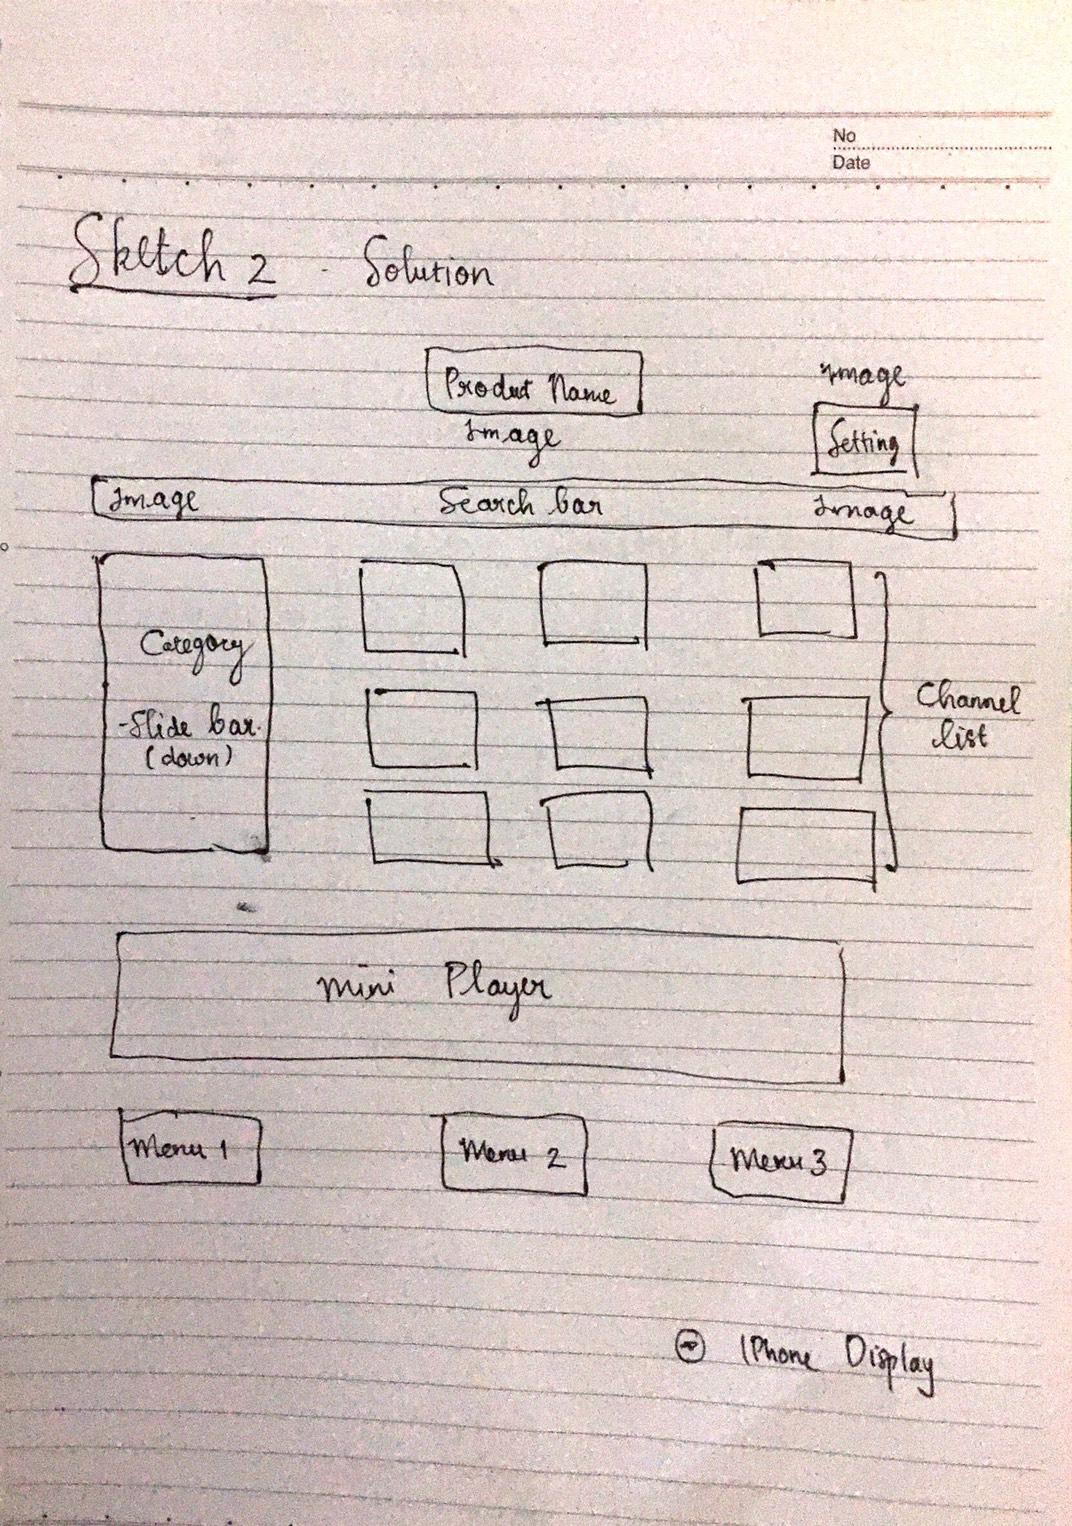 No
Date
Sketch 2 - Solution
Product Name
Image
Image
Setting
Image Search bar Image
Category
-Slide bar.
(down)
Channel
list
Mini Player
Menu 1
Menu 2
Menu 3
IPhone Display